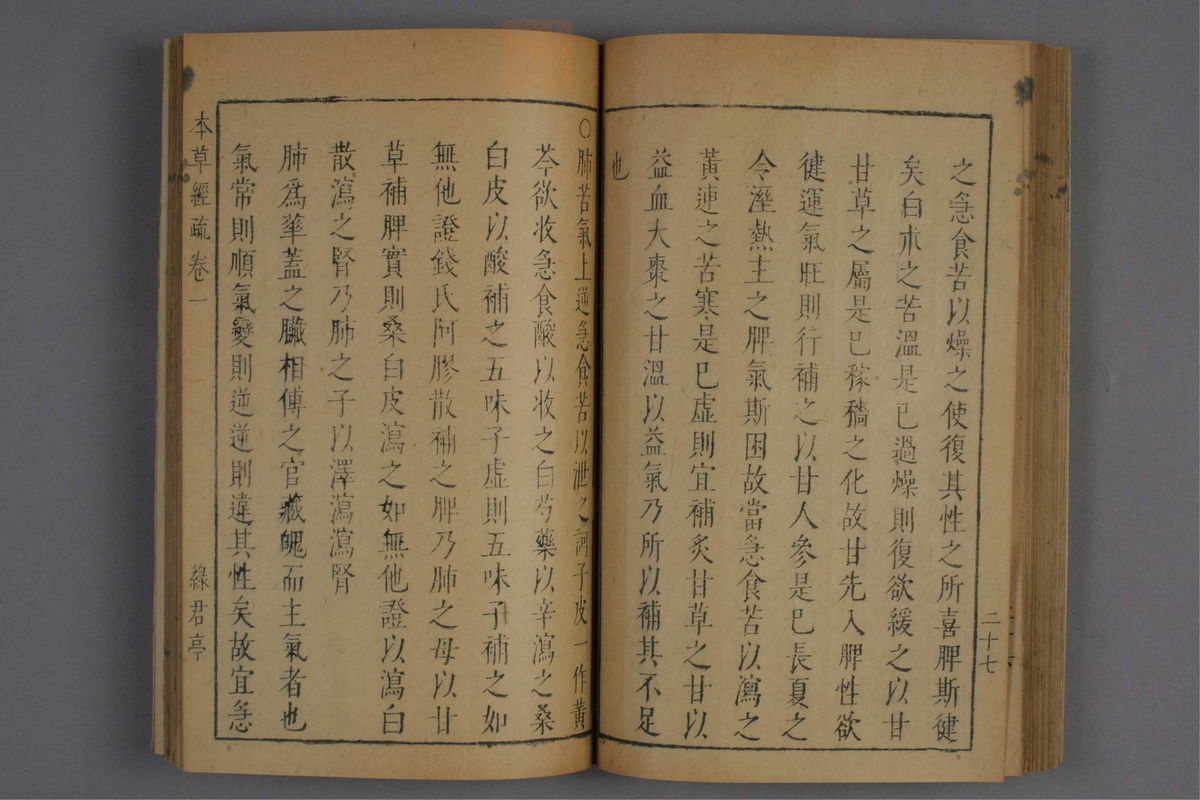 之急食苦以燥之使復其性之所喜脾斯健
矣白朮之苦溫是已過燥則復欲緩之以甘
甘草之屬是已稼穡之化故甘先入脾性欲
健運氣旺則行補之以甘人參是已長夏之
令溼熱主之脾氣斯困故當急食苦以瀉之
黃連之苦寒是已虛則宜補炙甘草之甘以
益血大棗之甘溫以益氣乃所以補其不足
也
二十七
○肺苦氣上逆急食苦以泄之訶子皮一作黃
芩欲收急食酸以收之白芍藥以辛瀉之桑
白皮以酸補之五味子虛則五味子補之如
無他證錢氏阿膠散補之脾乃肺之母以甘
草補脾實則桑白皮瀉之如無他證以瀉白
散瀉之腎乃肺之子以澤瀉瀉腎
肺爲華蓋之臟相傅之官藏魄而主氣者也
氣常則順氣變則逆逆則違其性矣故宜急
本草經疏 卷一 綠君亭